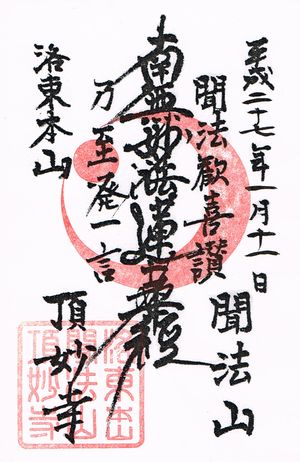 平成二十七年一月十一日
聞法歡喜讃
南無妙法蓮華経
乃至発一言
洛東本山
聞法山
頂妙寺
洛東本山
聞法山
頂妙寺